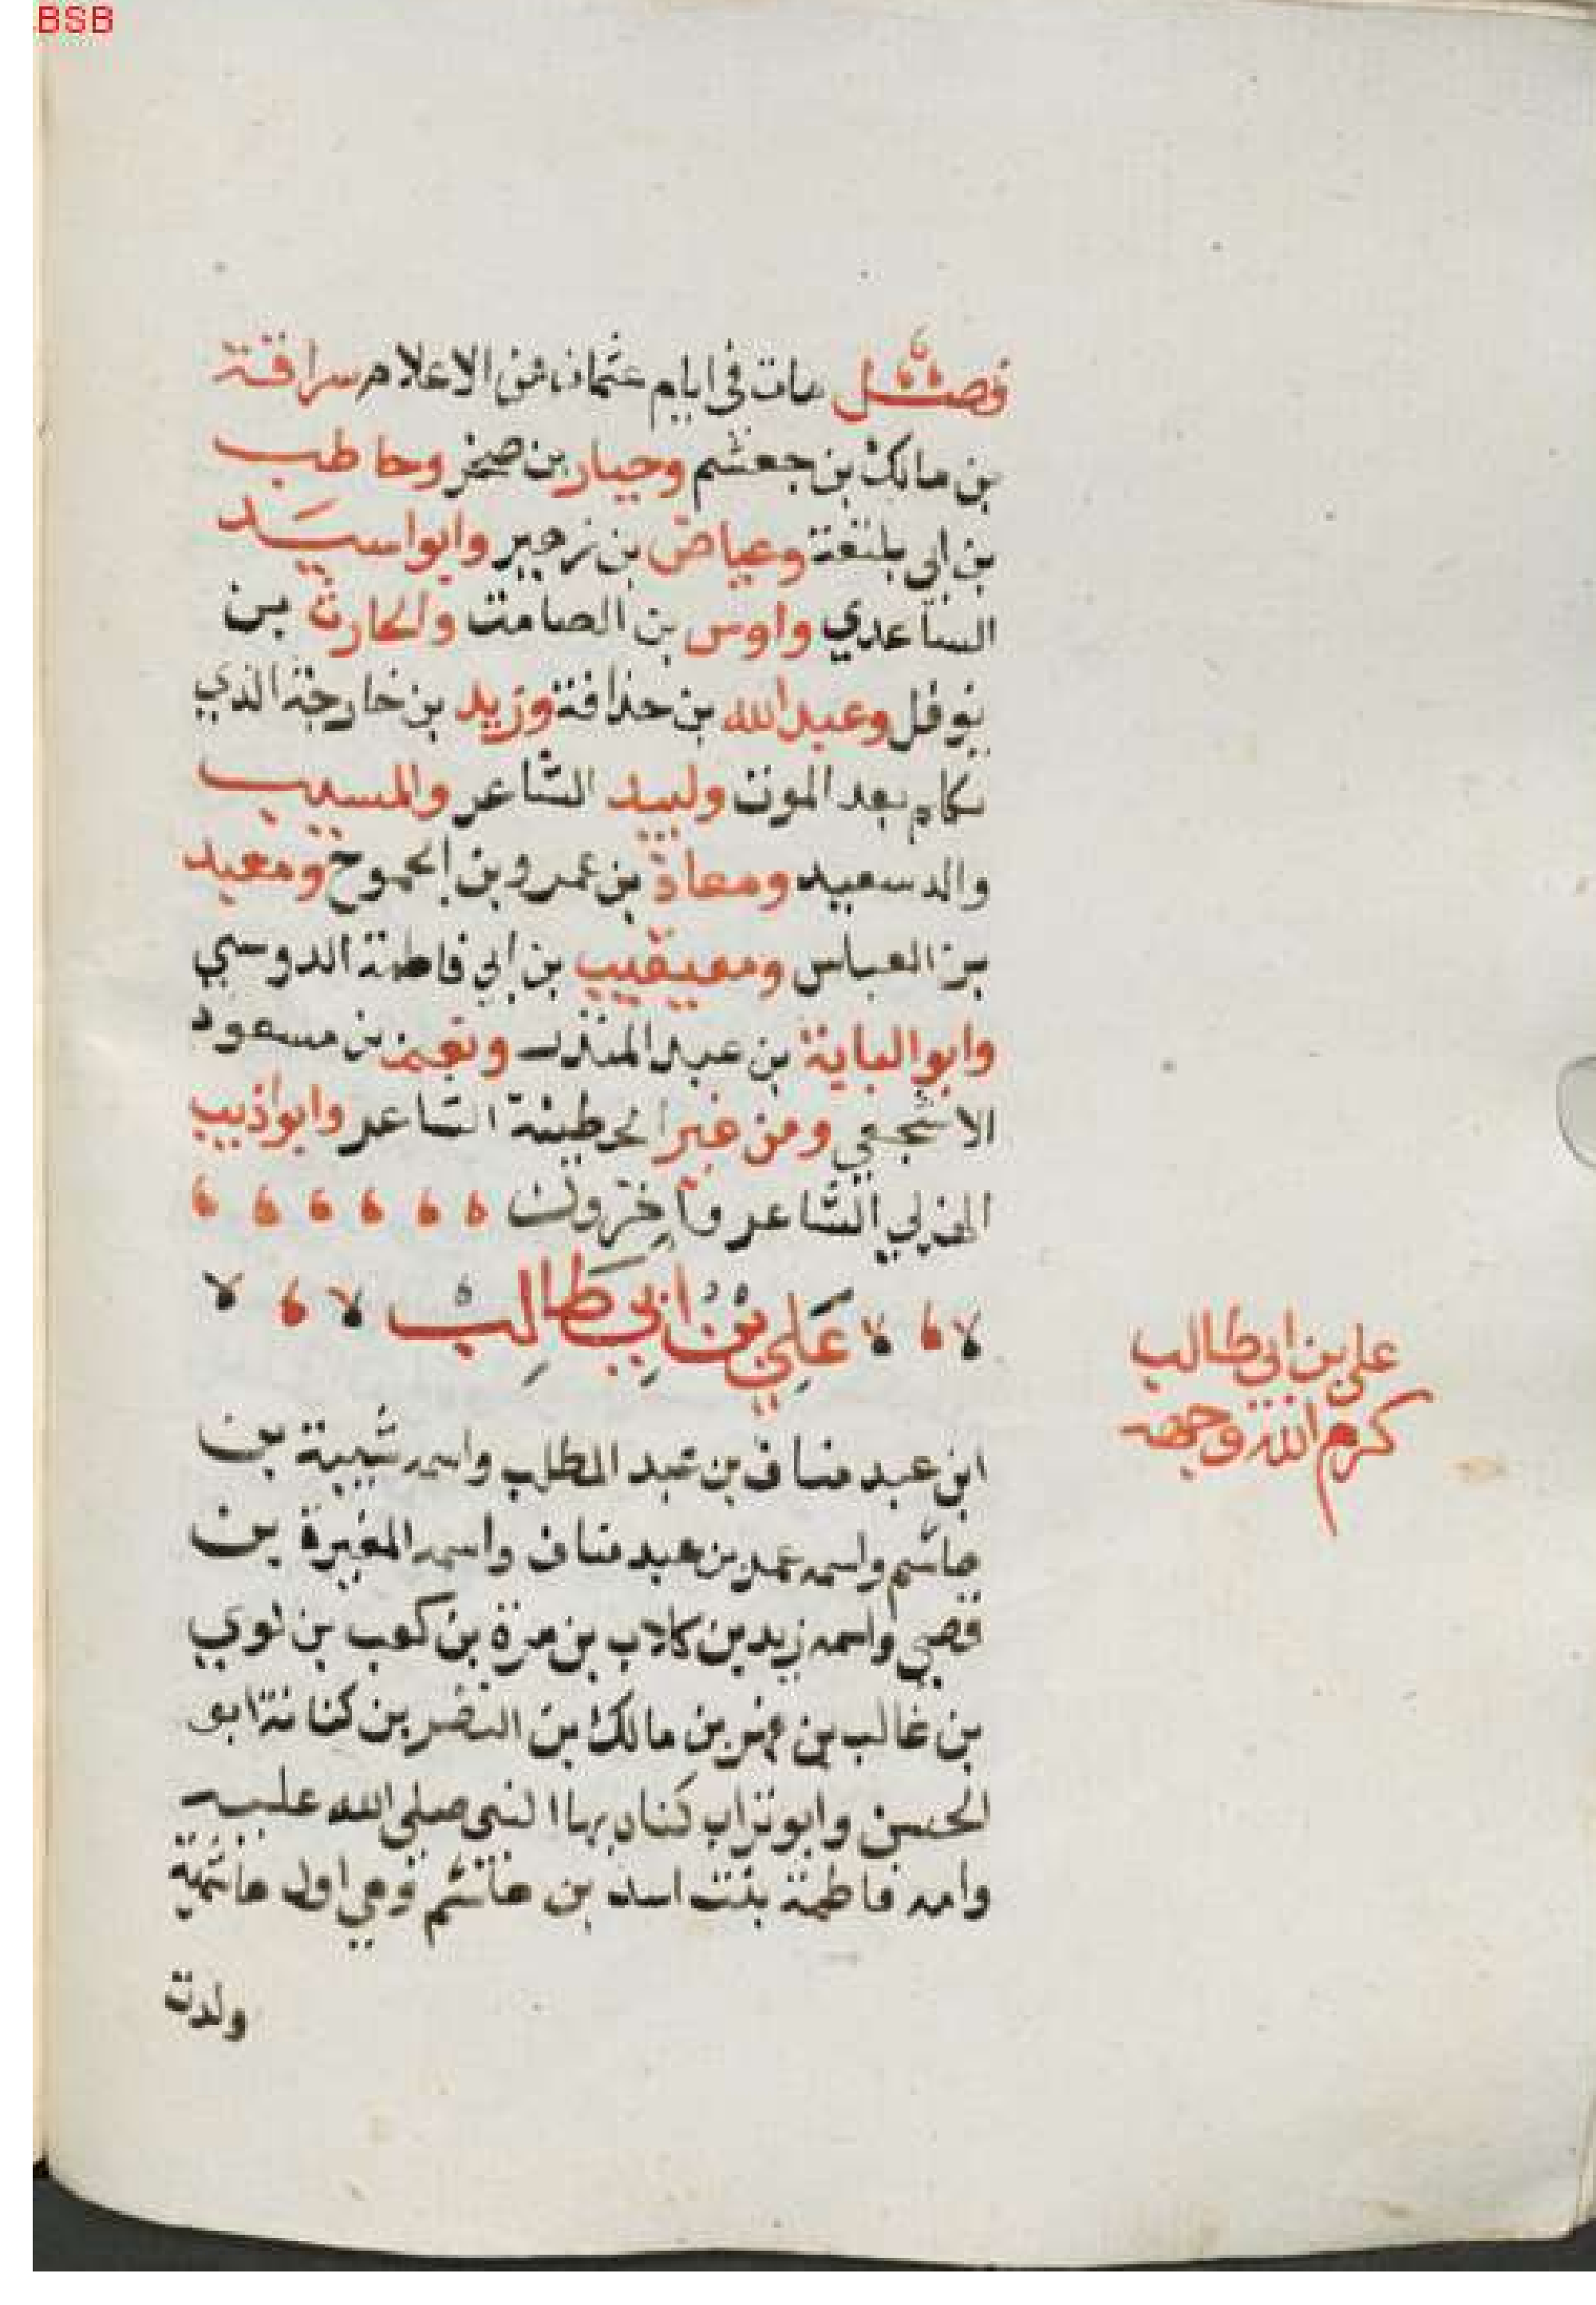 BSB
فصل مات في ايام عثمان من الاعلام سراقة
بن مالك بن جعشم وجبار بن صخر وحاطب
بن ابي بلتعة وعياض بن زهير وابو اسيد
الساعدي واوس بن الصامت والحارث بن
نوفل وعبد الله بن حذافة وزيد بن خارجة الذي
تكلم بعد الموت ولبيد الشاعر والمسيب
والد سعيد ومعاذ بن عمرو بن الجموح ومعبد
بن العباس ومعيقيب بن ابي فاطمة الدوسي
وابو البابة بن عبد المنذر ونعيم بن مسعود
الاشجعي ومن غير الحطيئة الشاعر وابو اذيب
الهذلي الشاعر وآخرون
عَلِي بْنُ ابِي طَالِبْ
علي بن ابي طالب
كرم الله وجهه
ابن عبد مناف بن عبد المطلب واسمه شيبة بن
هاشم واسمه عمر بن عبد مناف واسمه المغيرة بن
قصي واسمه زيد بن كلاب بن مرة بن كعب بن لوي
بن غالب بن فهر بن مالك بن النضر بن كنانة ابو
الحسن وابو تراب كناه بها النبي صلى الله عليه
وامه فاطمة بنت اسد بن هاشم وهي اول هاشمية
ولدت